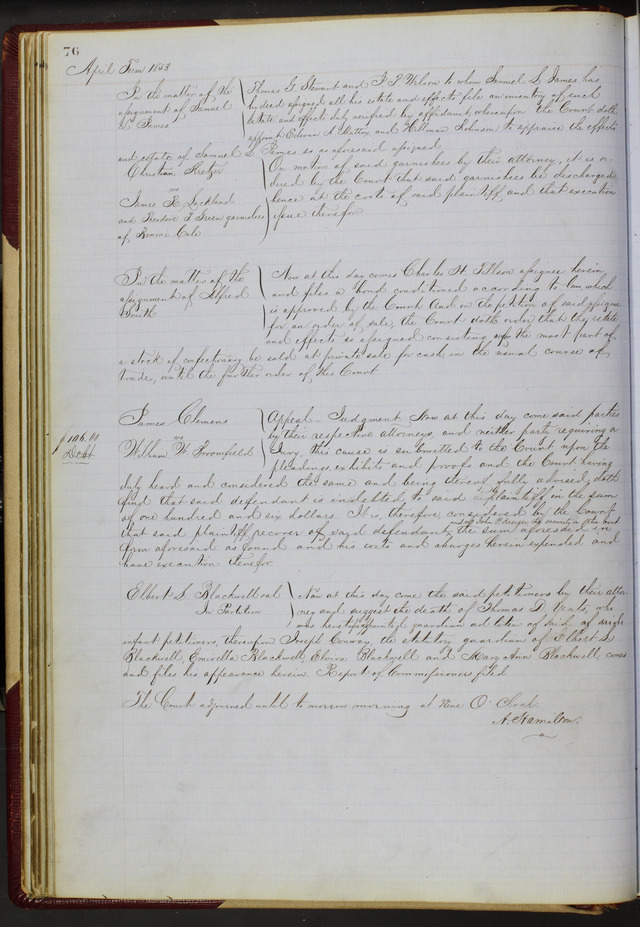 76
April Term 1853
In the matter of the
assignment of Samuel
S. James
Thomas G. Stewart and J. P. Wilson to whom Samuel S. James has
by deed assigned all his estate and effects file an inventory of such
estate and effects duly verified by affidavit, whereupon the Court doth
appoint Edwin A. and Hillman Robinson to appraise the effects
and estate of Samuel S. James so as aforesaid assigned
Christian
vs
James R. Lackland
and Theodore F. Green garnishees
of Cale
On motion of said garnishees by their attorney, it is or-
dered by the Court that said garnishees be discharged
hence at the costs of said plaintiff and that execution
issue therefor
In the matter of the
assignment of Alfred
Smith
Now at this day comes Charles H. Tillson assignee herein
and files a bond conditioned according to law which
is approved by the Court And on the petition of said assignee
for an order of sale, the Court doth order that the estate
and effects so assigned consisting for the most part of
a stock of confectionary be sold at private sale for cash in the usual course of
trade, until the further order of this Court
$106.00
Debt
James Clemens
vs
William W. Broomfield
Appeal - Judgment Now at this day come said parties
by their respective attorneys, and neither party requiring a
Jury this cause is submitted to the Court upon the
pleadings, exhibits and proofs and the Court having
duly heard and considered the same and being thereof fully advised, doth
find that said defendant is indebted to said plaintiff in the sum
of one hundred and six dollars. It is therefore, considered by the Court
that said plaintiff recover of said defendant and of John C. his security in the the sum aforesaid in
form aforesaid as found and his costs and charges herein expended and
have execution therefor.
Elbert S. Blackwell et al
In Partition
Now at this day come the said petitioners by their attor-
ney and suggest the death of Thomas D. who
was heretofore appointed guardian ad litem of said
infant petitioners, thereupon Joseph Conway, the statutory guardian of Elbert S.
Blackwell, Emirella Blackwell, Elvira Blackwell and Mary Ann Blackwell, comes
and files his appearance herein. Report of Commissioners filed
The Court adjourned until to morrow morning at Nine O'Clock
A. Hamilton